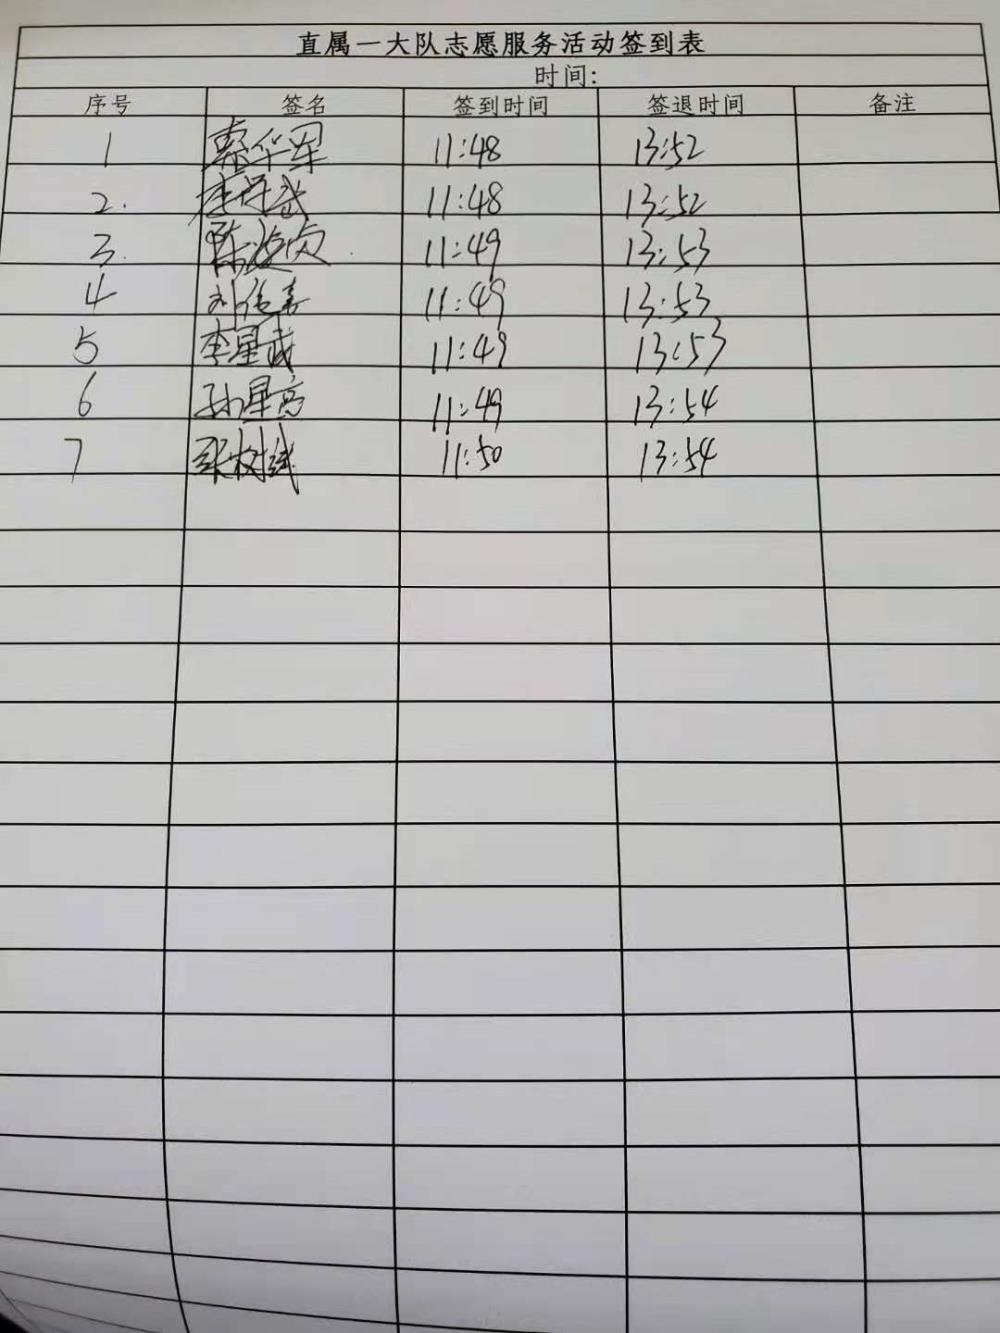 直属一大队志愿服务活动签到表
时间:
序号 签名 签到时间 签退时间 备注
1 秦华军 11:48 13:52
2. 11:48 13:52
3. 陈 11:49 13:53
4 刘 11:49 13:53
5 李星武 11:49 13:53
6 孙星高 11:49 13:54
7 张树斌 11:50 13:54